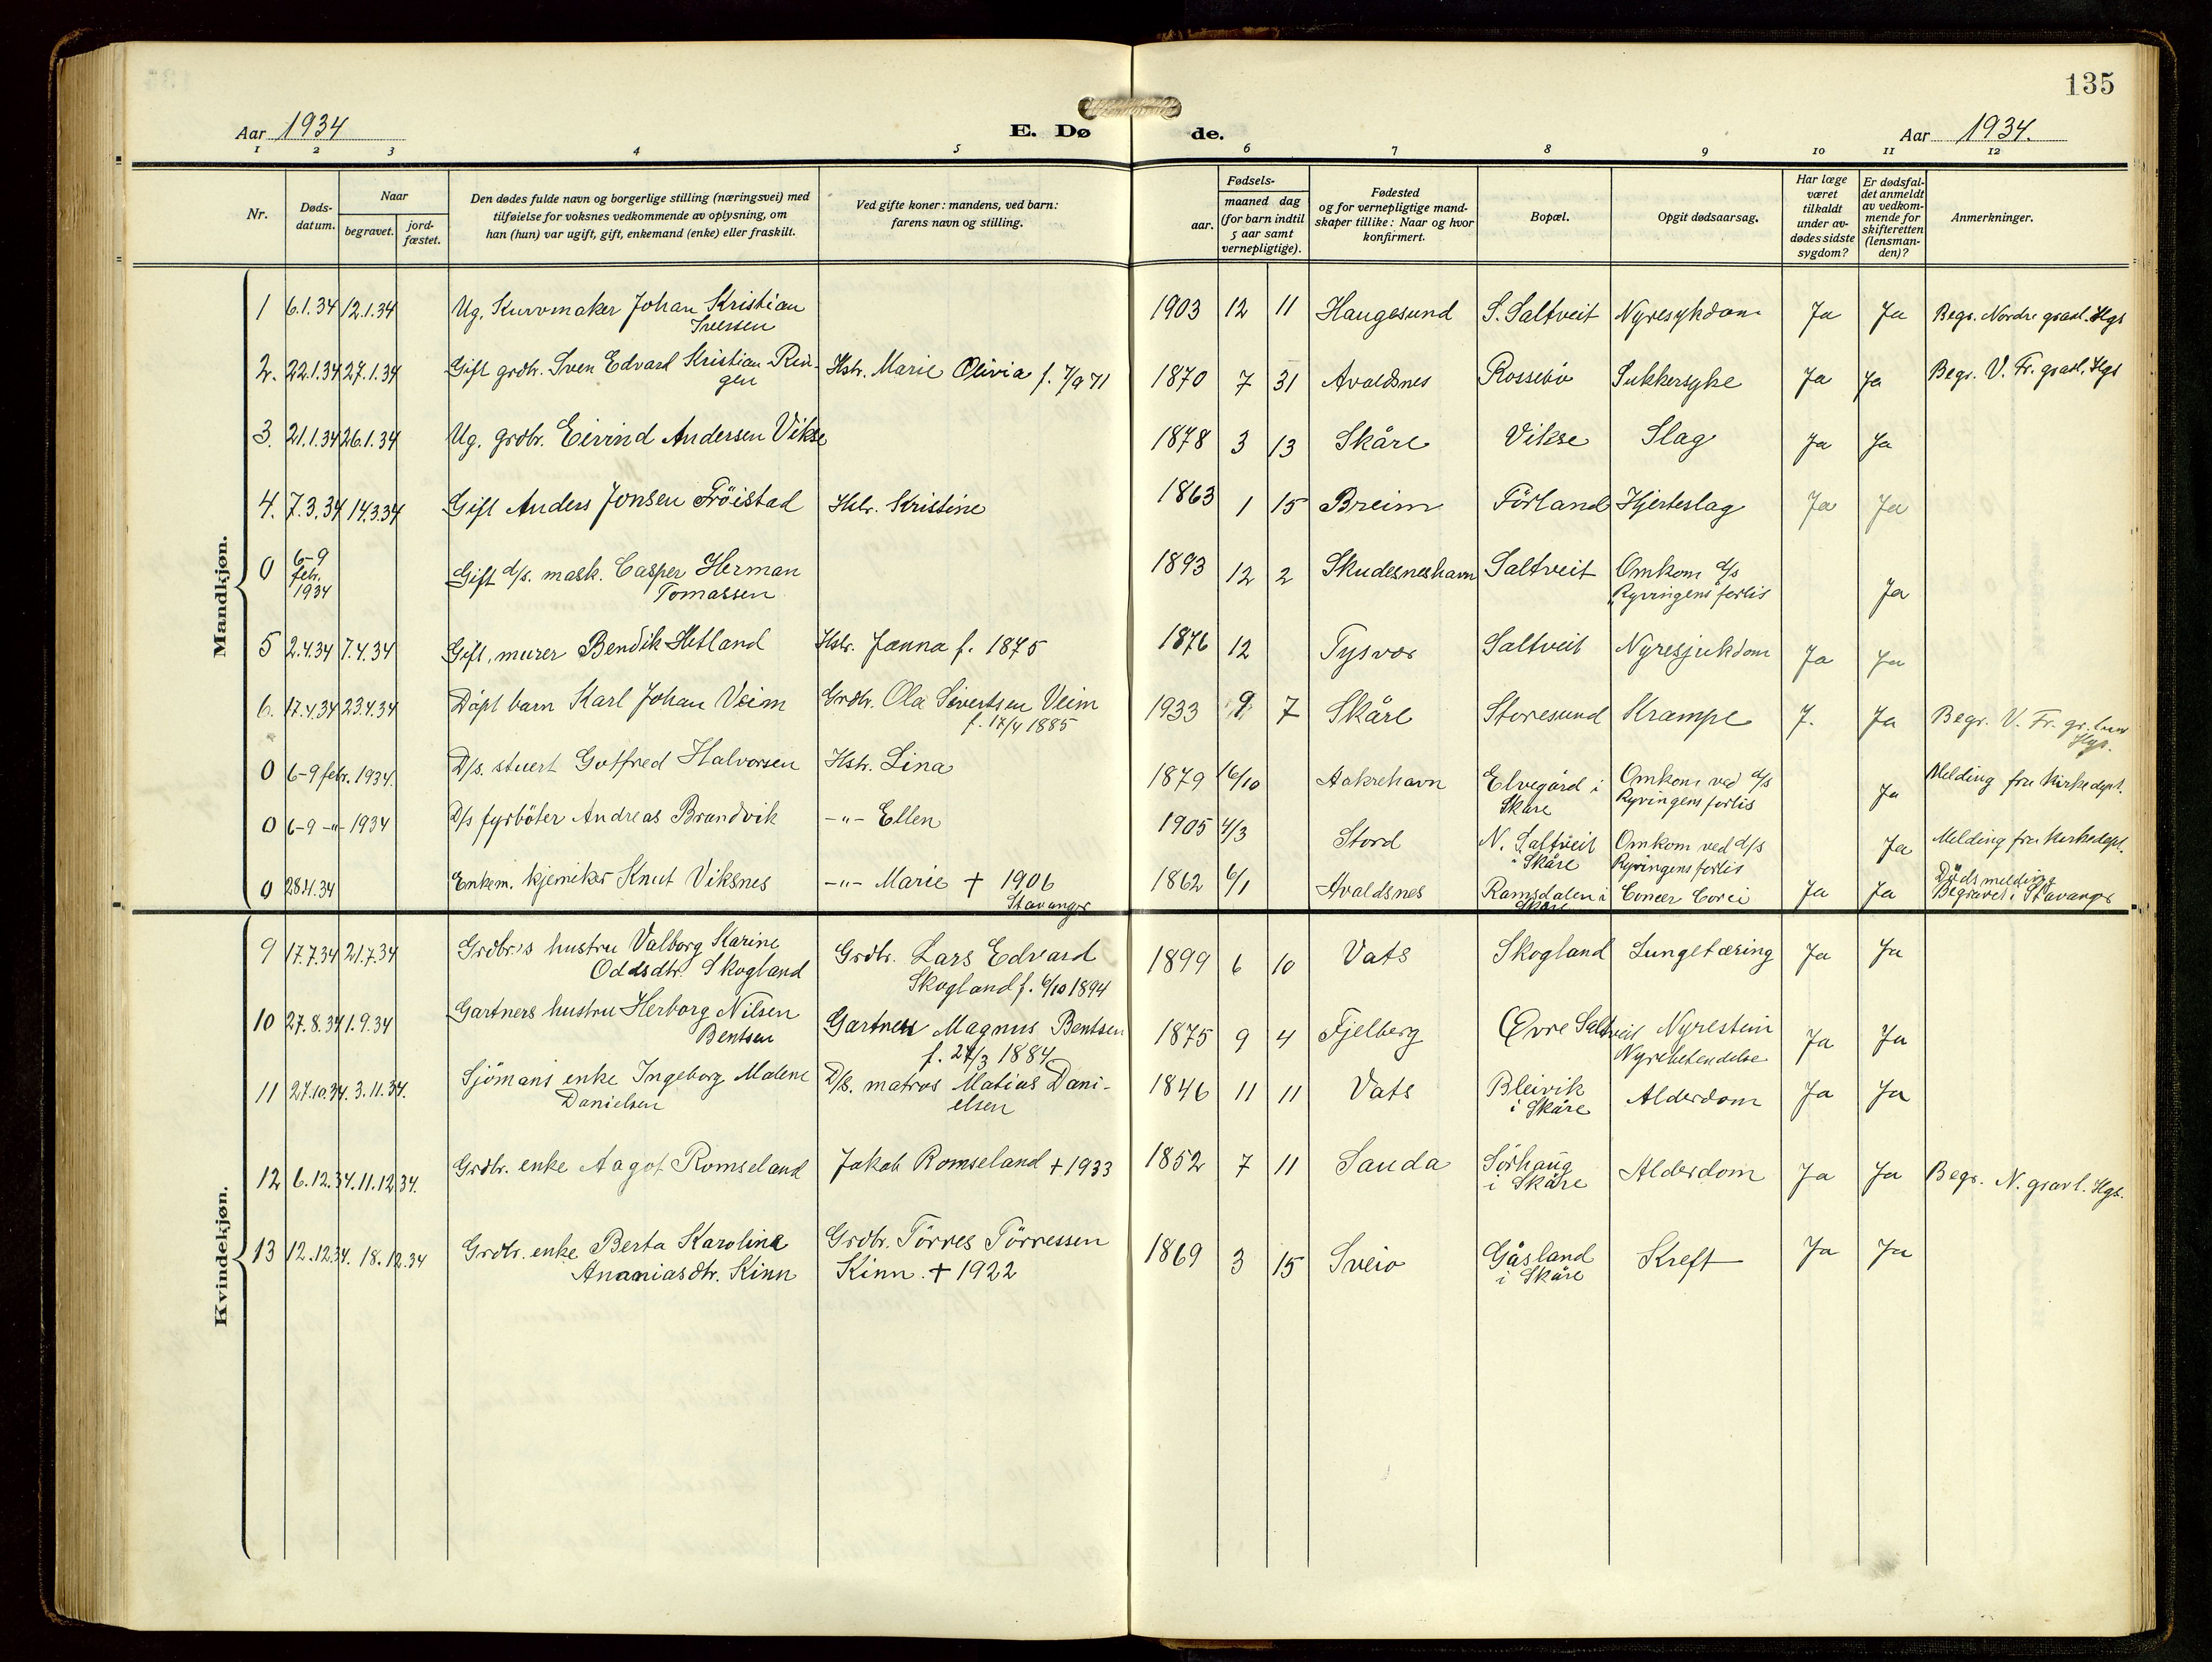 135
Aar 1934
E. Dø de.
Aar 1934.
1 2 3 4 5 6 7 8 9 10 11 12
Nr.
Døds-
datum.
Naar
begravet.
jord-
fæstet.
Den dødes fulde navn og borgerlige stilling (næringsvei) med
tilføielse for voksnes vedkommende av oplysning, om
han (hun) var ugift, gift, enkemand (enke) eller fraskilt.
Ved gifte koner: mandens, ved barn:
farens navn og stilling.
Fødsels-
aar.
maaned dag
(for barn indtil
5 aar samt
vernepligtige).
Fødested
og for vernepligtige mand-
skaper tillike: Naar og hvor
konfirmert.
Bopæl.
Opgit dødsaarsag.
Har læge
været
tilkaldt
under av-
dødes sidste
sygdom?
Er dødsfal-
det anmeldt
av vedkom-
mende for
skifteretten
(lensman-
den)?
Anmerkninger.
Mandkjøn.
1 6.1.34 12.1.34 Ug. Kurvmaker Johan Kristian 1903 12 11 Haugesund S. Saltveit Nyresykdom Ja Ja Begr. Nordre gravl. Hgs
Iversen
2. 22.1.34 27.1.34 Gift grdbr. Sven Edvard Kristian Rein- Hstr. Marie Olivia f. 7/9 71 1870 7 31 Avaldsnes Rossebø Sukkersyke Ja Ja Begr. V. Fr. gravl. Hgs
gen
3. 21.1.34 26.1.34 Ug. grdbr. Eivind Andersen Vikse 1878 3 13 Skåre Vikse Slag Ja Ja
4. 7.3.34 14.3.34 Gift Anders Jonsen Fröistad Hstr. Kristine 1863 1 15 Breim Förland Hjerteslag Ja Ja
0 6-9
febr.
1934 Gift d/s. mask. Casper Herman 1893 12 2 Skudesneshavn Saltveit Omkom d/s
Tomassen "Ryvingens forlis Ja
5 2.4.34 7.4.34 Gift, murer Bendik Hetland Hstr. Janna f. 1875 1876 12 Tysvær Saltveit Nyresjukdom Ja Ja
6. 17.4.34 23.4.34 Döpt barn Karl Johan Veim Grdbr. Ola Sivertsen Veim 1933 9 7 Skåre Storesund Krampe J. Ja Begr. V. Fr. gr. lun
f. 17/4 1885 Hgs.
0 6-9 febr. 1934. D/s. stuert Gotfred Halvorsen Hstr. Lina 1879 16/10 Aakrehavn Elvegård i Omkom ved d/s Ja Melding fra Kirkedept.
Skåre Ryvingens forlis
0 6-9 -"- 1934 D/s fyrböter Andreas Brandvik -"- Ellen 1905 4/3 Stord N. Saltveit Omkom ved d/s Ja Melding fra Kirkedept.
i Skåre Ryvingens forlis
0 28.4.34 Enkem. kjemiker Knut Viksnes -"- Marie + 1906 1862 6/1 Avaldsnes Ramsdalen i Ja Ja Dödsmelding
Stavanger Skåre Begravet i Stavanger
Kvindekjøn.
9 17.7.34 21.7.34 Grdbr.s hustru Valborg Karine Grdbr. Lars Edvard 1899 6 10 Vats Skogland Lungetæring Ja Ja
Oddsdtr. Skogland Skogland f. 6/10 1894
10 27.8.34 1.9.34 Gartners hustru Herborg Nilsen Gartner Magnus Bentsen 1875 9 4 Fjelberg Övre Saltveit Nyrestein Ja Ja
Bentsen f. 24/3 1884 Nyrebetendelse
11 27.10.34. 3.11.34. Sjömans enke Ingeborg Malene D/s. matros Matias Dani- 1846 11 11 Vats Bleivik Alderdom Ja Ja
Danielsen elsen i Skåre
12 6.12.34. 11.12.34. Grdbr. enke Aagot Romseland Jakob Romseland + 1933 1852 7 11 Sauda Sörhaug Alderdom Ja Ja Begr. N. gravl. Hgs.
i Skåre
13 12.12.34. 18.12.34 Grdbr. enke Berta Karolina Grdbr. Törres Törressen 1869 3 15 Sveio Gåsland Kreft Ja Ja
Ananiasdtr. Kinn Kinn. + 1922 i Skåre